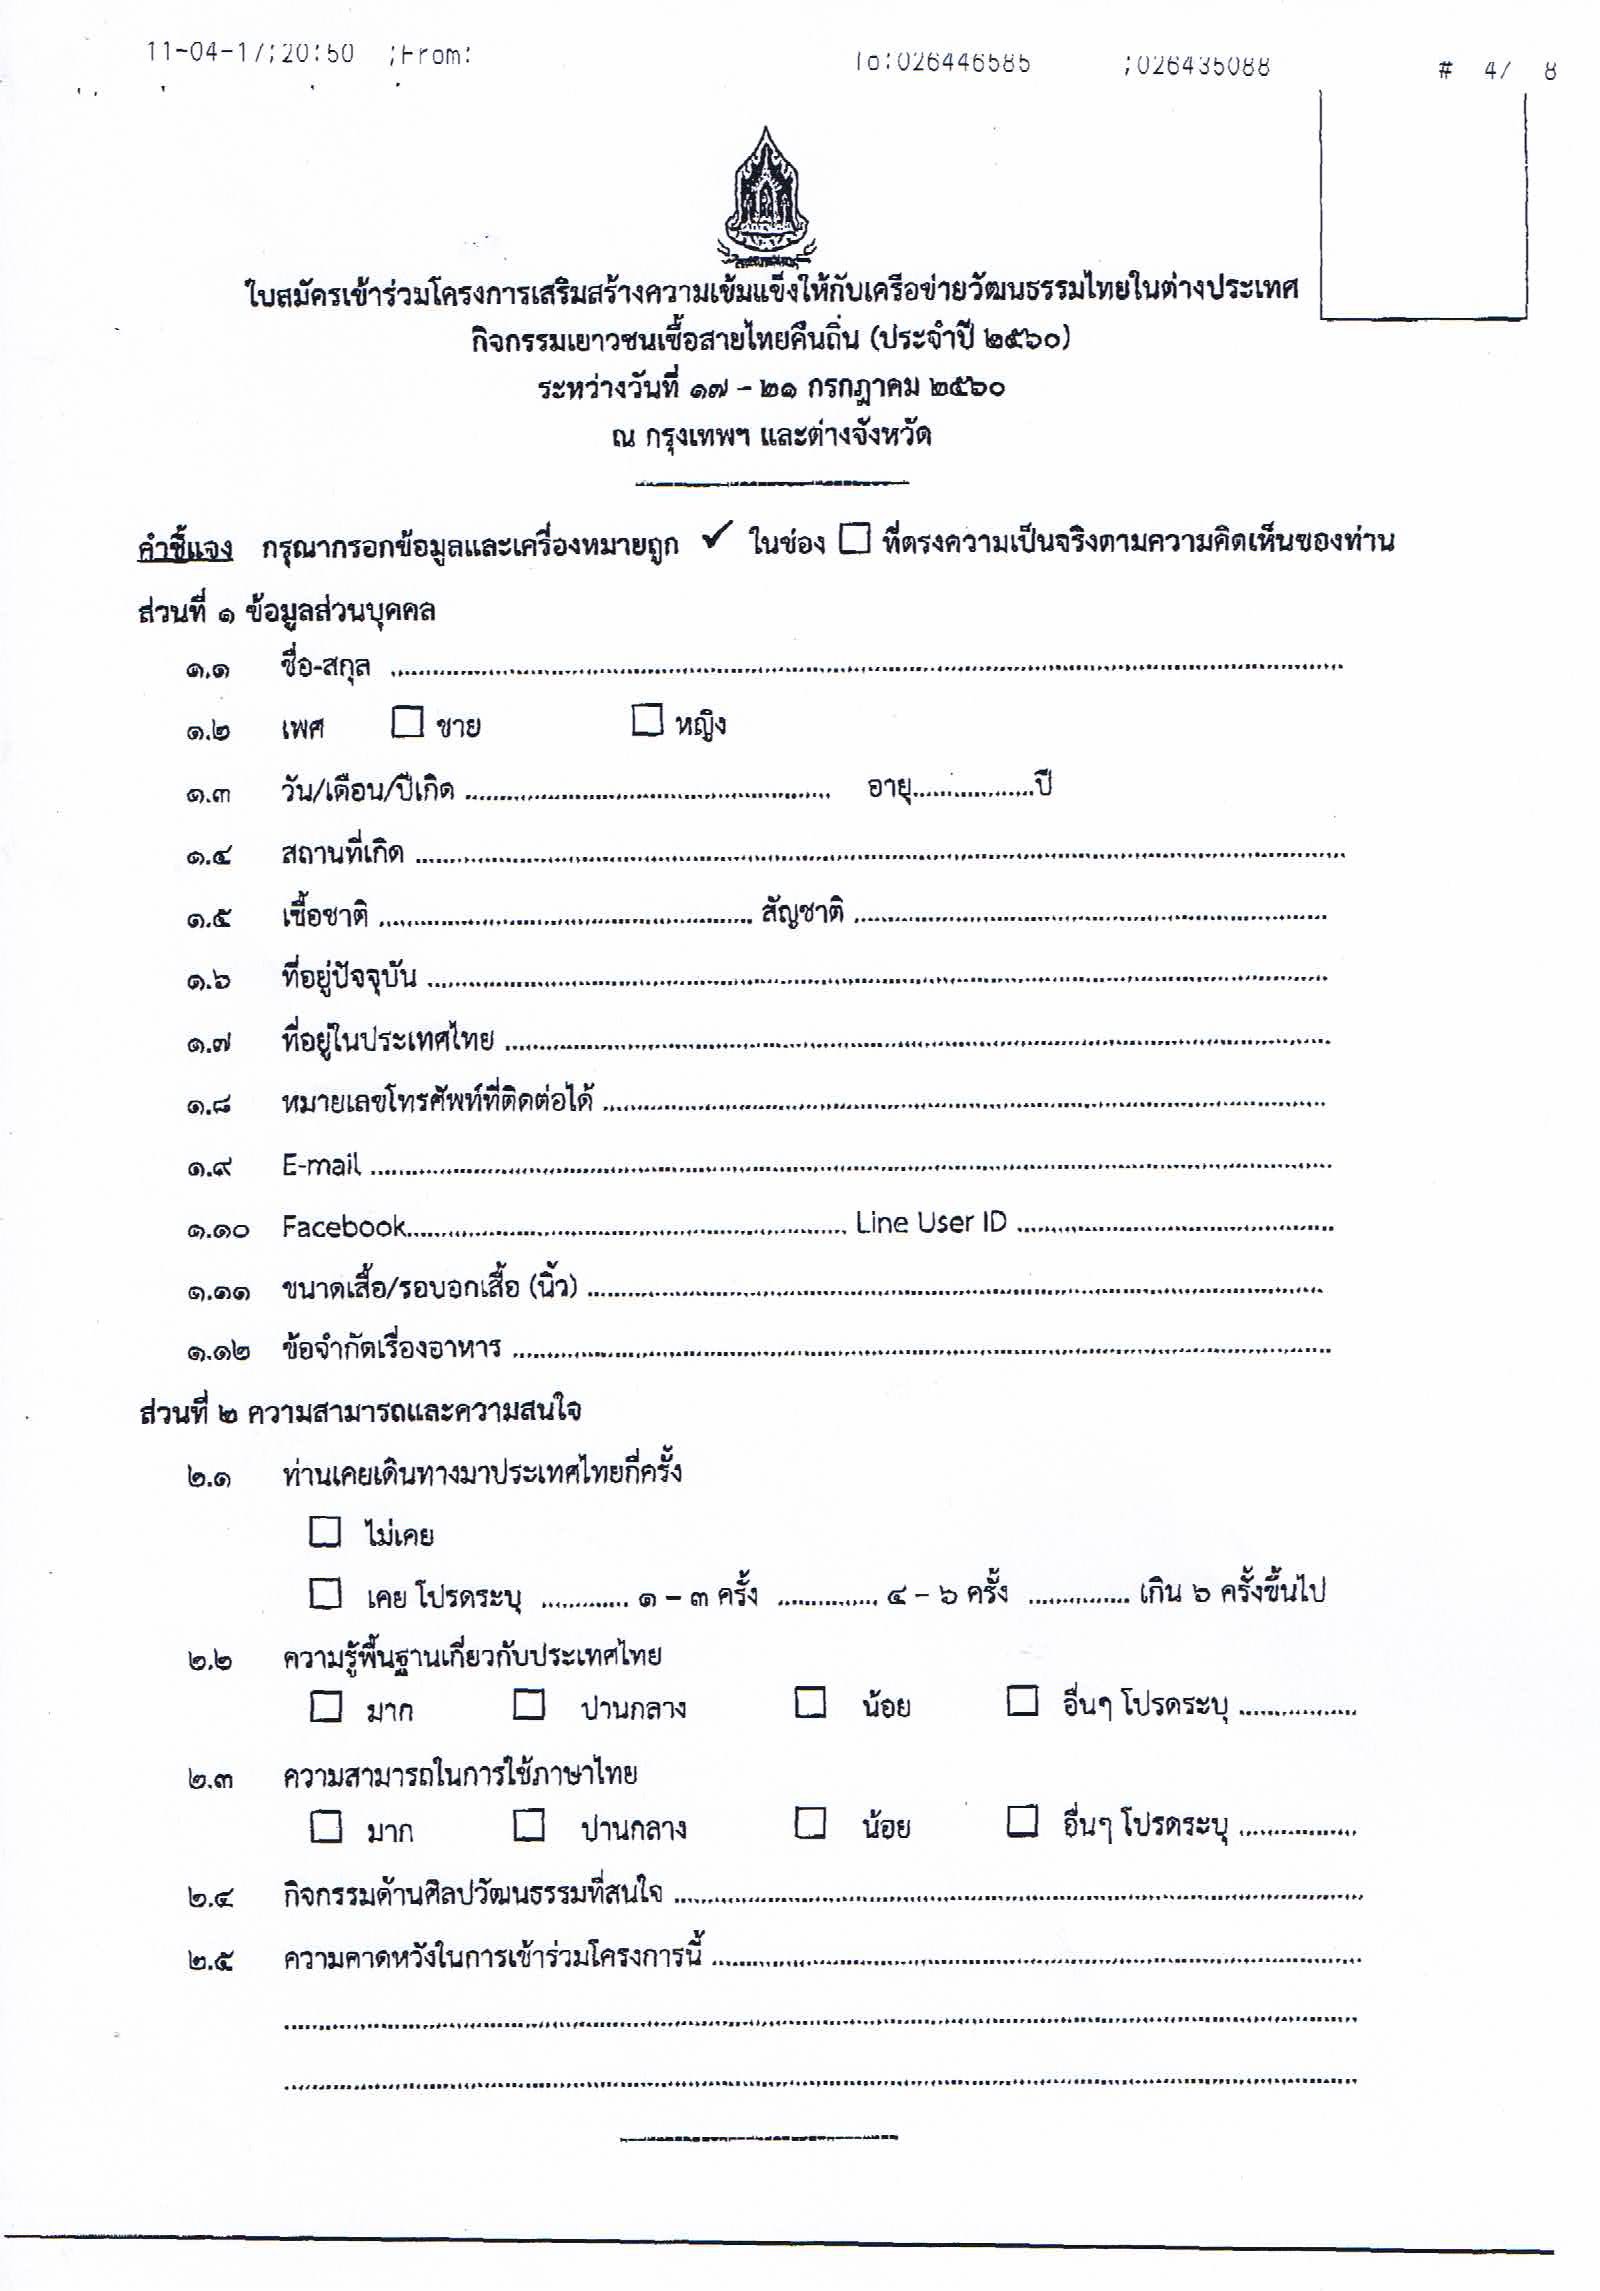 11-04-17;20:50 ;From: To:026446585 ;026435088 # 4/ 8
ใบสมัครเข้าร่วมโครงการเสริมสร้างความเข้มแข็งให้กับเครือข่ายวัฒนธรรมไทยในต่างประเทศ
กิจกรรมเยาวชนเชื้อสายไทยคืนถิ่น (ประจำปี ๒๕๖๐)
ระหว่างวันที่ ๑๗ – ๒๑ กรกฎาคม ๒๕๖๐
ณ กรุงเทพฯ และต่างจังหวัด
คำชี้แจง กรุณากรอกข้อมูลและเครื่องหมายถูก ✓ ในช่อง ☐ ที่ตรงความเป็นจริงตามความคิดเห็นของท่าน
ส่วนที่ ๑ ข้อมูลส่วนบุคคล
๑.๑ ชื่อ-สกุล ........................................
๑.๒ เพศ ☐ ชาย ☐ หญิง
๑.๓ วัน/เดือน/ปีเกิด ........................................ อายุ..................ปี
๑.๔ สถานที่เกิด ........................................
๑.๕ เชื้อชาติ ........................................ สัญชาติ ........................................
๑.๖ ที่อยู่ปัจจุบัน ........................................
๑.๗ ที่อยู่ในประเทศไทย ........................................
๑.๘ หมายเลขโทรศัพท์ที่ติดต่อได้ ........................................
๑.๙ E-mail ........................................
๑.๑๐ Facebook........................................ Line User ID ........................................
๑.๑๑ ขนาดเสื้อ/รอบอกเสื้อ (นิ้ว) ........................................
๑.๑๒ ข้อจำกัดเรื่องอาหาร ........................................
ส่วนที่ ๒ ความสามารถและความสนใจ
๒.๑ ท่านเคยเดินทางมาประเทศไทยกี่ครั้ง
☐ ไม่เคย
☐ เคย โปรดระบุ ............ ๑ – ๓ ครั้ง .............. ๔ – ๖ ครั้ง .............. เกิน ๖ ครั้งขึ้นไป
๒.๒ ความรู้พื้นฐานเกี่ยวกับประเทศไทย
☐ มาก ☐ ปานกลาง ☐ น้อย ☐ อื่นๆ โปรดระบุ ................
๒.๓ ความสามารถในการใช้ภาษาไทย
☐ มาก ☐ ปานกลาง ☐ น้อย ☐ อื่นๆ โปรดระบุ ................
๒.๔ กิจกรรมด้านศิลปวัฒนธรรมที่สนใจ ........................................
๒.๕ ความคาดหวังในการเข้าร่วมโครงการนี้ ........................................